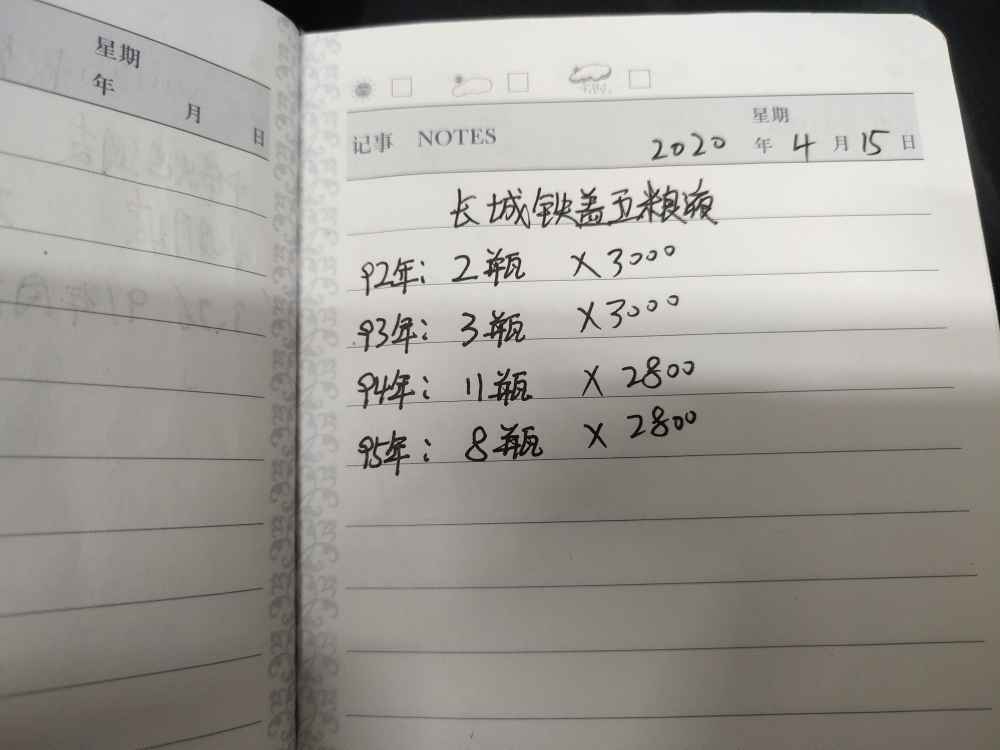 星期
年 月 日
记事 NOTES
星期
2020 年 4 月 15 日
长城铁盖五粮液
92年: 2瓶 × 3000
93年: 3瓶 × 3000
94年: 11瓶 × 2800
95年: 8瓶 × 2800